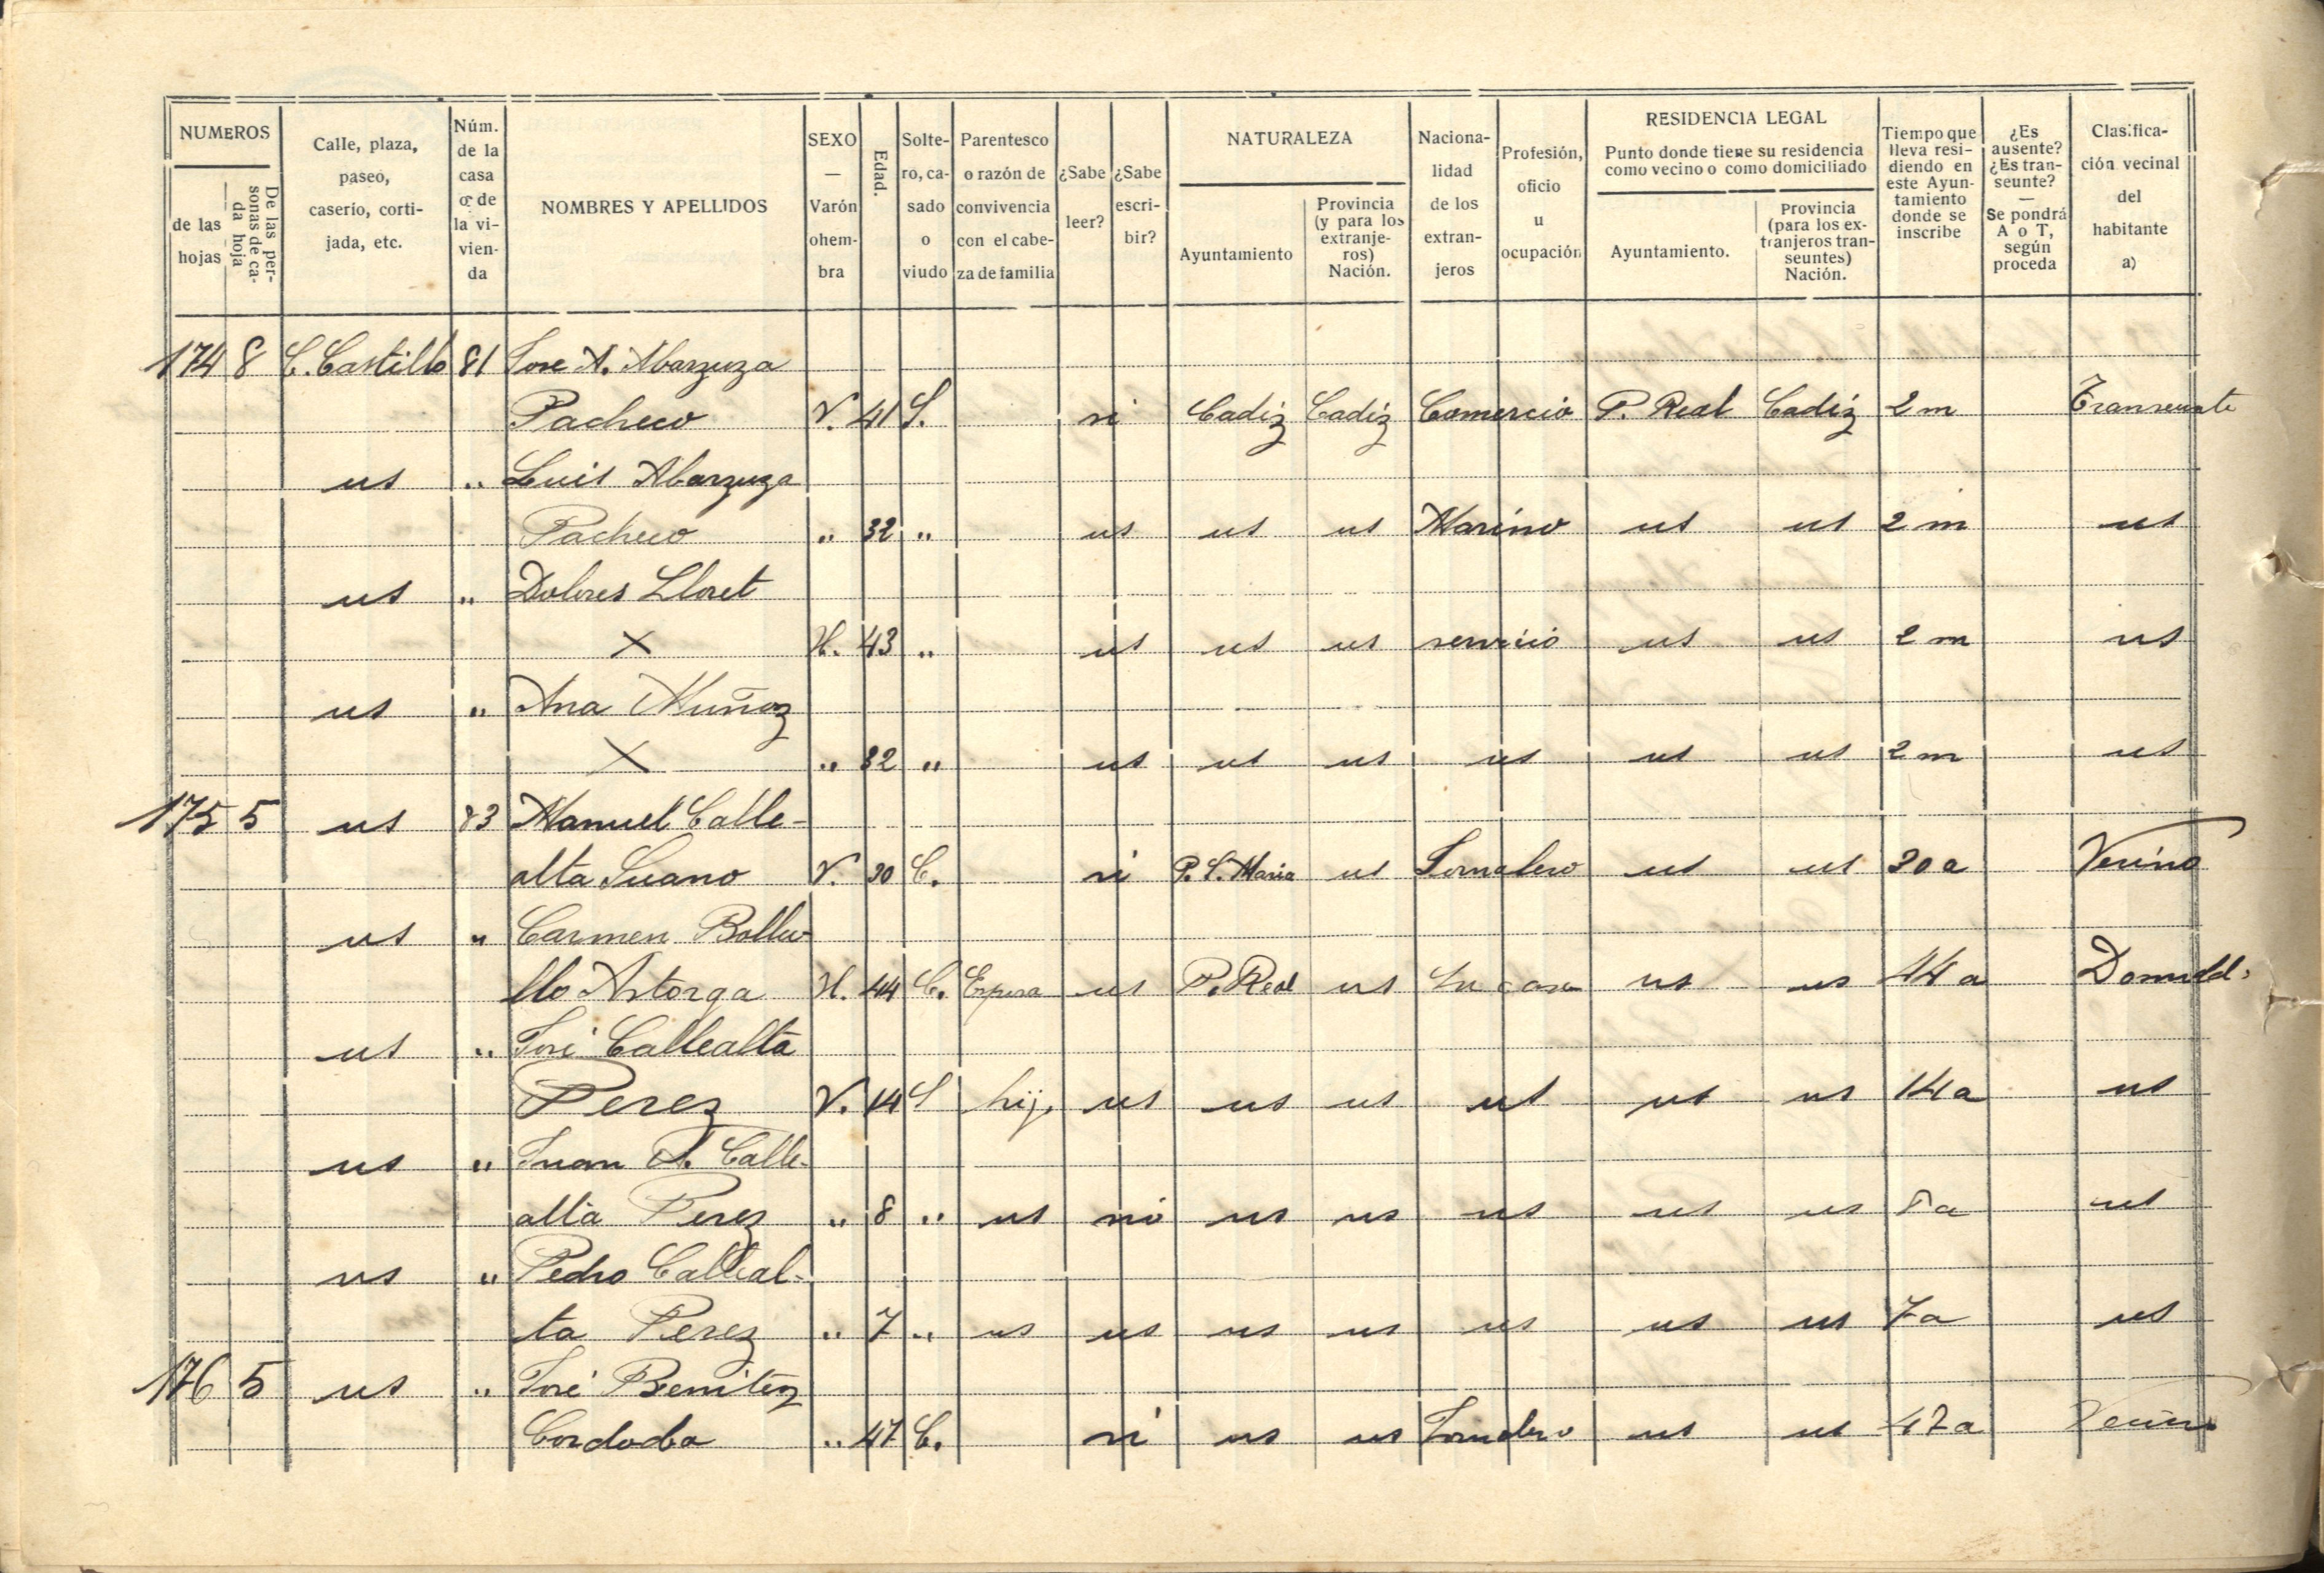 NUMEROS
de las hojas
De las personas de cada hoja
Calle, plaza, paseo, caserío, cortijada, etc.
Núm. de la casa o de la vivienda
NOMBRES Y APELLIDOS
SEXO — Varón ohembra
Edad.
Soltero, casado o viudo
Parentesco o razón de convivencia con el cabeza de familia
¿Sabe leer?
¿Sabe escribir?
NATURALEZA
Ayuntamiento
Provincia (y para los extranjeros) Nación.
Nacionalidad de los extranjeros
Profesión, oficio u ocupación
RESIDENCIA LEGAL
Punto donde tiene su residencia como vecino o como domiciliado
Ayuntamiento.
Provincia (para los extranjeros transeuntes) Nación.
Tiempo que lleva residiendo en este Ayuntamiento donde se inscribe
¿Es ausente? ¿Es transeunte? — Se pondrá A o T, según proceda
Clasificación vecinal del habitante a)
174 8 C. Castillo 81 Jose A. Abarzuza
Pacheco V. 41 S. si Cadiz Cadiz Comercio P. Real Cadiz 2 m Transeunte
us " Luis Abarzuza
Pacheco " 32 " us us us Marino us us 2 m us
us " Dolores Lloret
X H. 43 " us us us servicio us us 2 m us
us " Ana Muñoz
X " 32 " us us us us us us 2 m us
175 5 us 83 Manuel Calle-
alta Suano V. 30 C. si P. S. Maria us Jornalero us us 30 a Vecino
us " Carmen Bollu-
llo Astorga H. 44 C. Esposa us P. Real us Su casa us us 44 a Domicd.
us " José Callealta
Perez V. 14 S hijo us us us us us us 14 a us
us " Juan A. Calle-
alta Perez " 8 " us no us us us us us 8 a us
us " Pedro Calleal-
ta Perez " 7 " us us us us us us us 7 a us
176 5 us " José Benitez
Cordoba " 47 C. si us us Jornalero us us 47 a Vecino